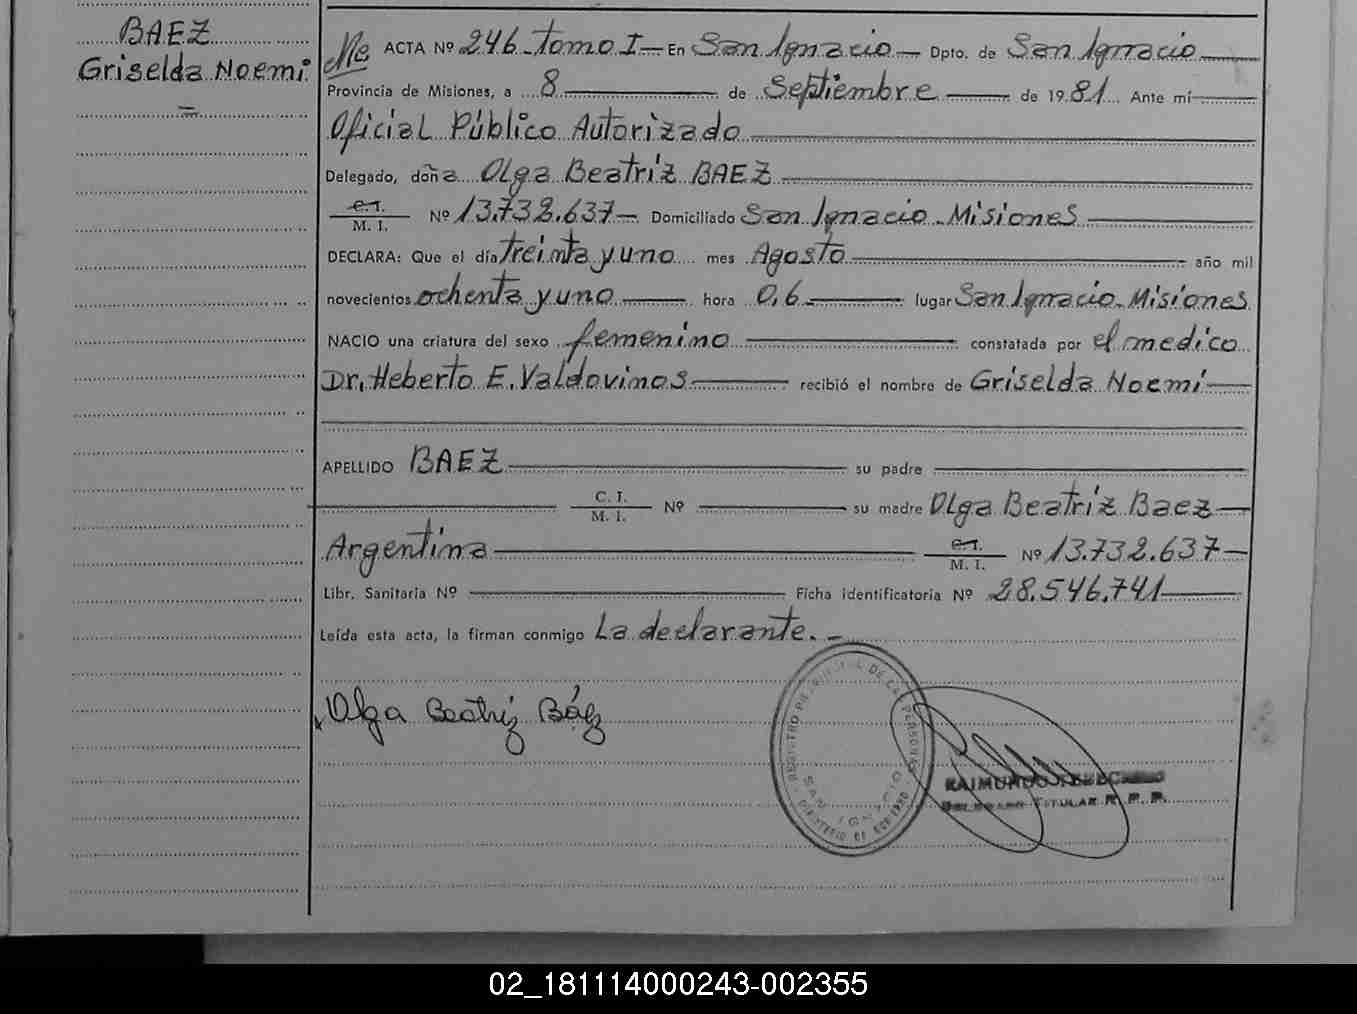 BAEZ
Griselda Noemi
ACTA Nº 246 - Tomo I — En San Ignacio — Dpto. de San Ignacio
Provincia de Misiones, a 8 de Septiembre de 1981 Ante mí
Oficial Público Autorizado
Delegado, doña Olga Beatriz BAEZ
C.I.
M. I. Nº 13.732.637 — Domiciliado San Ignacio - Misiones
DECLARA: Que el día treinta y uno mes Agosto año mil
novecientos ochenta y uno hora 0,6 lugar San Ignacio - Misiones
NACIO una criatura del sexo femenino constatada por el medico
Dr. Heberto E. Valdovinos recibió el nombre de Griselda Noemi
APELLIDO BAEZ su padre
C. I.
M. I. Nº su madre Olga Beatriz Baez
Argentina C.I.
M. I. Nº 13.732.637
Libr. Sanitaria Nº Ficha identificatoria Nº 28.546.741
Leída esta acta, la firman conmigo La declarante. -
Olga Beatriz Báez
REGISTRO PROVINCIAL DE LAS PERSONAS
SAN IGNACIO
MINISTERIO DE GOBIERNO
RAIMUNDO
DELEGADO TITULAR R. P. P.
02_181114000243-002355